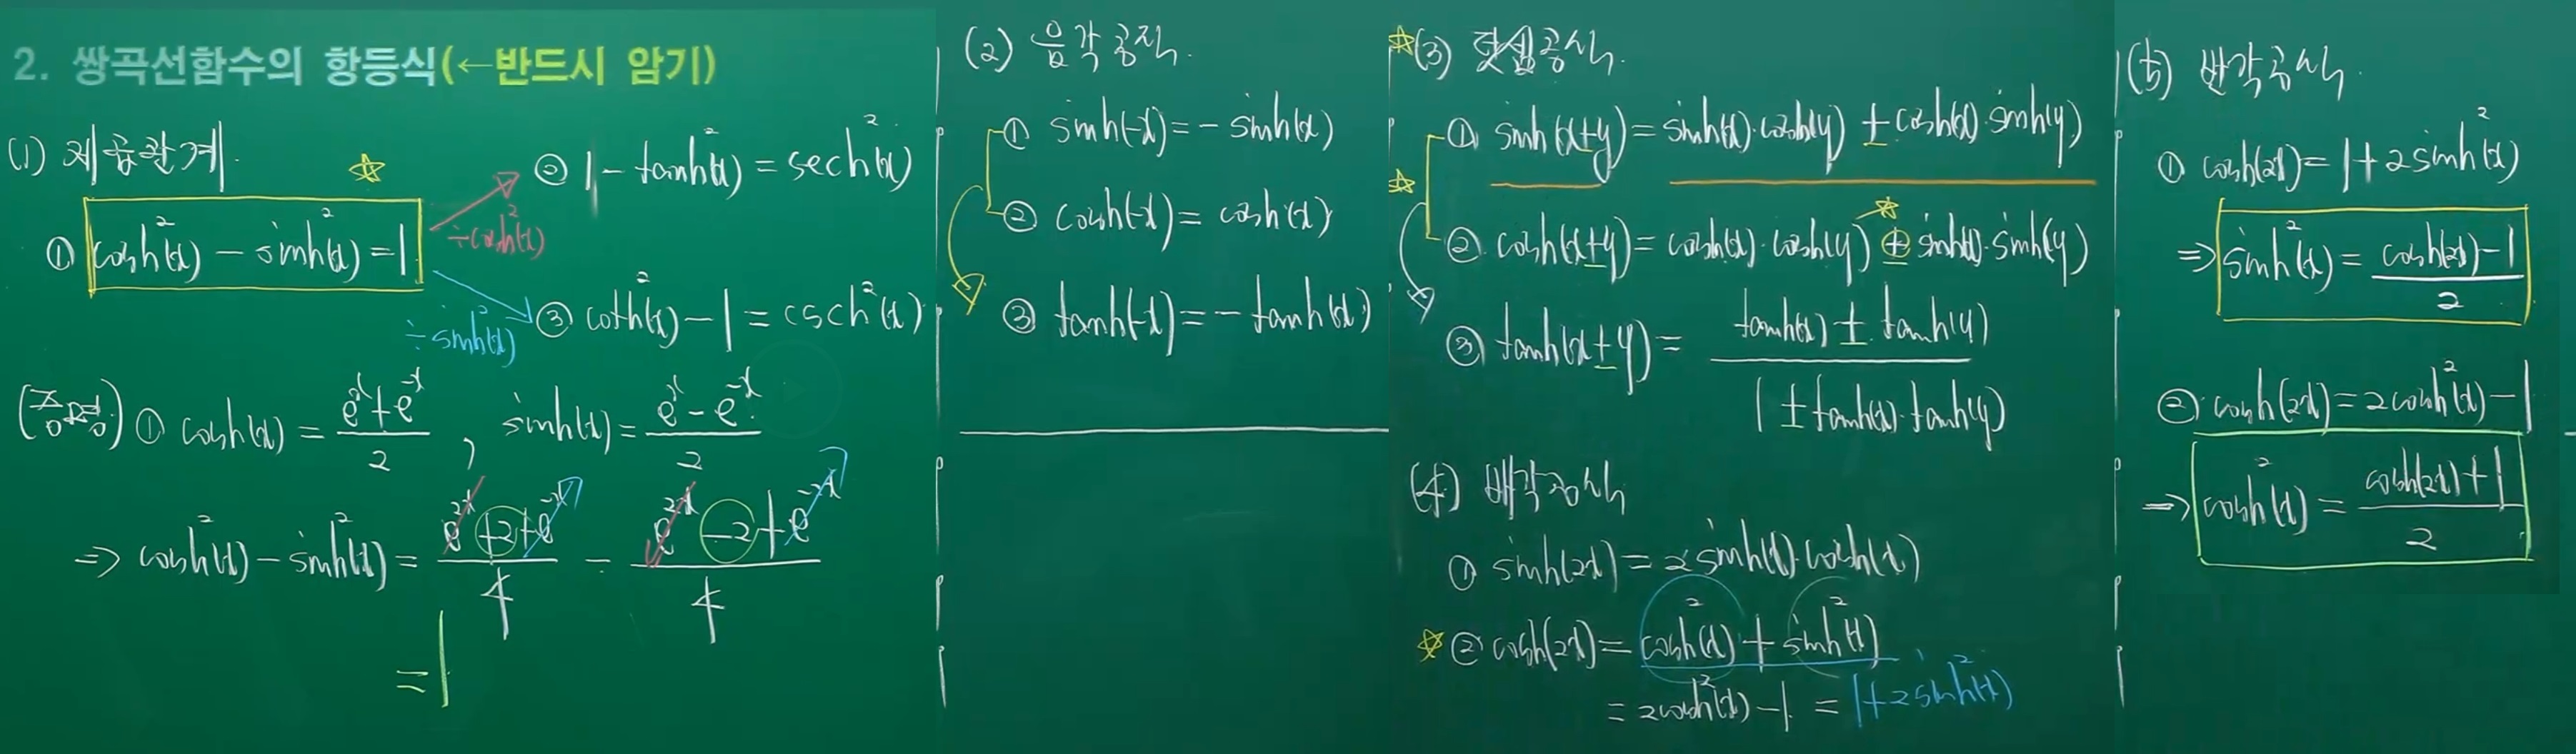 2. 쌍곡선함수의 항등식(←반드시 암기)
(1) 제곱관계.
① cosh²(x) - sinh²(x) = 1
÷cosh²(x)
② 1 - tanh²(x) = sech²(x)
÷sinh²(x)
③ coth²(x) - 1 = csch²(x)
(증명) ① cosh(x) = (eˣ+e⁻ˣ)/2 , sinh(x) = (eˣ-e⁻ˣ)/2
⇒ cosh²(x) - sinh²(x) = (e²ˣ+2+e⁻²ˣ)/4 - (e²ˣ-2+e⁻²ˣ)/4
= 1
(2) 음각공식.
① sinh(-x) = - sinh(x)
② cosh(-x) = cosh(x)
③ tanh(-x) = - tanh(x)
☆(3) 덧셈공식.
① sinh(x±y) = sinh(x)·cosh(y) ± cosh(x)·sinh(y)
☆
② cosh(x±y) = cosh(x)·cosh(y) ± sinh(x)·sinh(y)
③ tanh(x±y) = (tanh(x) ± tanh(y))/(1 ± tanh(x)·tanh(y))
(4) 배각공식
① sinh(2x) = 2sinh(x)·cosh(x)
☆② cosh(2x) = cosh²(x) + sinh²(x)
= 2cosh²(x) - 1. = 1+2sinh²(x)
(5) 반각공식.
① cosh(2x) = 1+2sinh²(x)
⇒ sinh²(x) = (cosh(2x)-1)/2
② cosh(2x) = 2cosh²(x) - 1
⇒ cosh²(x) = (cosh(2x)+1)/2